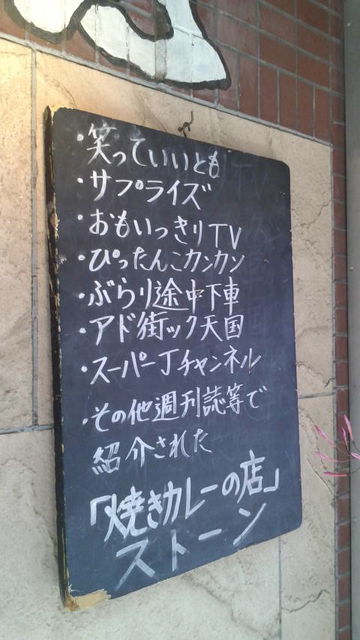 ・笑っていいとも
・サプライズ
・おもいっきりTV
・ぴったんこカンカン
・ぶらり途中下車
・アド街ック天国
・スーパーJチャンネル
・その他週刊誌等で
紹介された
「焼きカレーの店」
ストーン